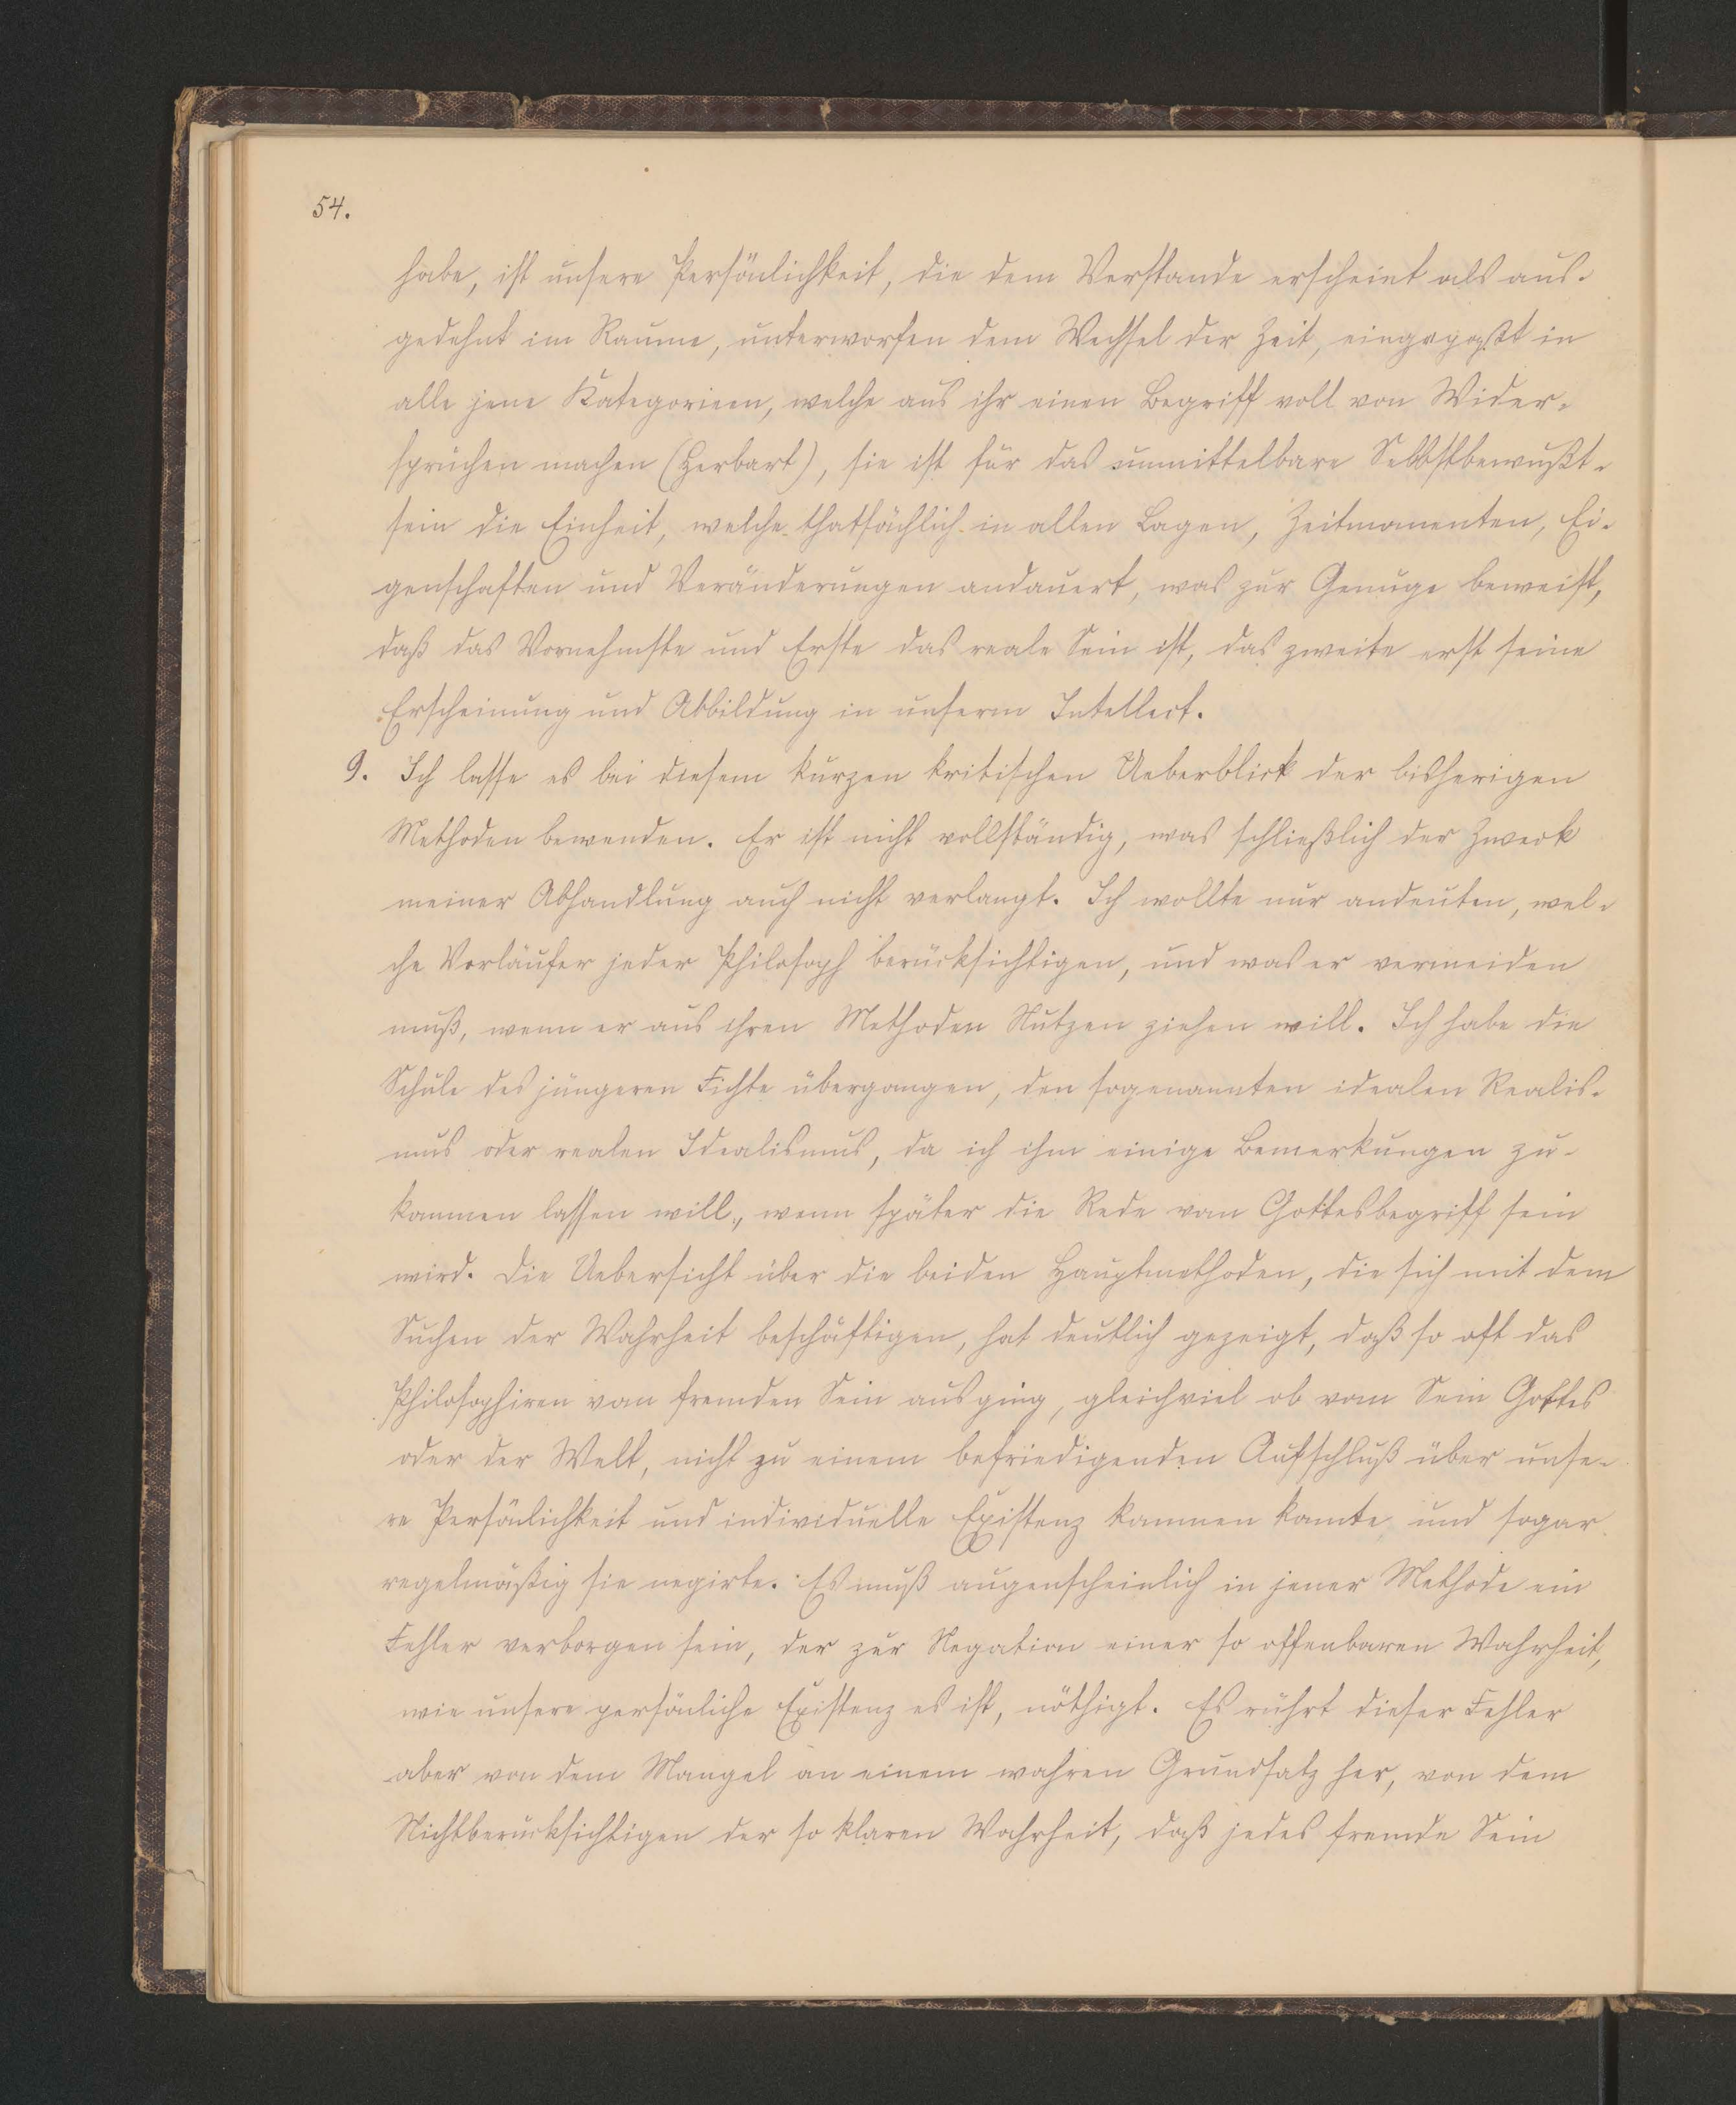 54.
habe, ist unsere Persönlichkeit, die dem Verstande erscheint als aus-
gedehnt im Raume, unterworfen dem Wechsel der Zeit, eingepaßt in
alle jene Kategorieen, welche aus ihr einen Begriff voll von Wider-
sprüchen machen (Herbart), sie ist für das unmittelbare Selbstbewußt-
sein die Einheit, welche thatsächlich in allen Lagen, Zeitmomenten, Ei-
genschaften und Veränderungen andauert, was zur Genüge beweist,
daß das Vornehmste und Erste das reale Sein ist, das zweite erst seine
Erscheinung und Abbildung in unserm Intellect.
9. Ich lasse es bei diesem kurzen kritischen Ueberblick der bisherigen
Methoden bewenden. Er ist nicht vollständig, was schließlich der Zweck
meiner Abhandlung auch nicht verlangt. Ich wollte nur andeuten, wel-
che Vorläufer jeder Philosoph berücksichtigen, und was er vermeiden
muß, wenn er aus ihren Methoden Nutzen ziehen will. Ich habe die
Schule des jüngeren Fichte übergangen, den sogenannten idealen Realis-
mus oder realen Idealismus, da ich ihm einige Bemerkungen zu-
kommen lassen will, wenn später die Rede vom Gottesbegriff sein
wird. Die Uebersicht über die beiden Hauptmethoden, die sich mit dem
Suchen der Wahrheit beschäftigen, hat deutlich gezeigt, daß so oft das
Philosophiren vom fremden Sein ausging, gleichviel ob vom Sein Gottes
oder der Welt, nicht zu einem befriedigenden Aufschluß über unse-
re Persönlichkeit und individuelle Existenz kommen konnte, und sogar
regelmäßig sie negirte. Es muß augenscheinlich in jener Methode ein
Fehler verborgen sein, der zur Negation einer so offenbaren Wahrheit,
wie unsere persönliche Existenz es ist, nöthigt. Es rührt dieser Fehler
aber von dem Mangel an einem wahren Grundsatz her, von dem
Nichtberücksichtigen der so klaren Wahrheit, daß jedes fremde Sein